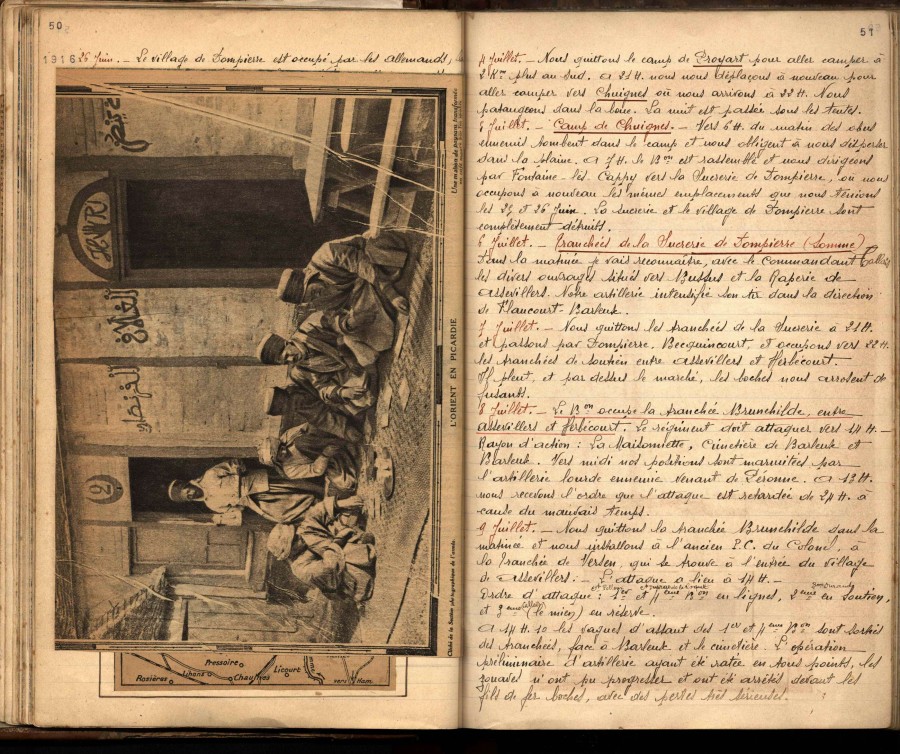 50
1916 26 Juin. — Le village de Dompierre est occupé par les allemands,
L'ORIENT EN PICARDIE
Cliché de la Section photographique de l'armée.
Pressoire
Rosières Lihons Chaulnes Licourt
vers Ham.
51
4 Juillet. — Nous quittons le camp de Proyart pour aller camper à
2 Km plus au sud. A 21 H. nous nous déplaçons à nouveau pour
aller camper vers Chuignes où nous arrivons à 22 H. Nous
pataugeons dans la boue. La nuit est passée sous les tentes.
5 Juillet. — Camp de Chuignes. — Vers 6 H. du matin des obus
ennemis tombent dans le camp et nous obligent à nous disperser
dans la plaine. A 7 H. le Bon est rassemblé et nous dirigeons
par Fontaine-les-Cappy vers la Sucrerie de Dompierre, où nous
occupons à nouveau les même emplacements que nous tenions
les 25 et 26 Juin. La sucrerie et le village de Dompierre sont
complètement détruits.
6 Juillet. — Tranchées de la Sucrerie de Dompierre (Somme)
Dans la matinée je vais reconnaître, avec le Commandant
les divers ouvrages situés vers Bussus et la Raperie de
Assevillers. Notre artillerie intensifie son tir dans la direction
de Flaucourt-Barleux.
7 Juillet. — Nous quittons les tranchées de la Sucrerie à 21 H.
et passons par Dompierre. Becquincourt, et occupons vers 22 H.
les tranchées de soutien entre Assevillers et Herbécourt.
Il pleut, et par dessus le marché, les boches nous arrosent de
fusants.
8 Juillet. — Le Bon occupe la tranchée Brunehilde, entre
Assevillers et Herbécourt. Le régiment doit attaquer vers 14 H. —
Rayon d'action : La Maisonnette, Cimetière de Barleux et
Barleux. Vers midi nos positions sont marmitées par
l'artillerie lourde ennemie venant de Péronne. A 13 H.
nous recevons l'ordre que l'attaque est retardée de 24 H. à
cause du mauvais temps.
9 Juillet. — Nous quittons la tranchée Brunehilde dans la
matinée et nous installons à l'ancien P.C. du Colonel, à
la Tranchée de Versen, qui se trouve à l'entrée du village
de Assevillers. — L'attaque a lieu à 14 H. —
Ordre d'attaque : 1er et 4eme Bon en lignes, 2eme en soutien,
et 3eme (le mien) en réserve.
A 14 H. 10 les vagues d'assaut des 1er et 4eme Bon sont sorties
des tranchées, face à Barleux et le cimetière. L'opération
préliminaire d'artillerie ayant été ratée en tous points, les
zouaves n'ont pu progresser et ont été arrêtés devant les
fils de fer boches, avec des pertes très sérieuses.